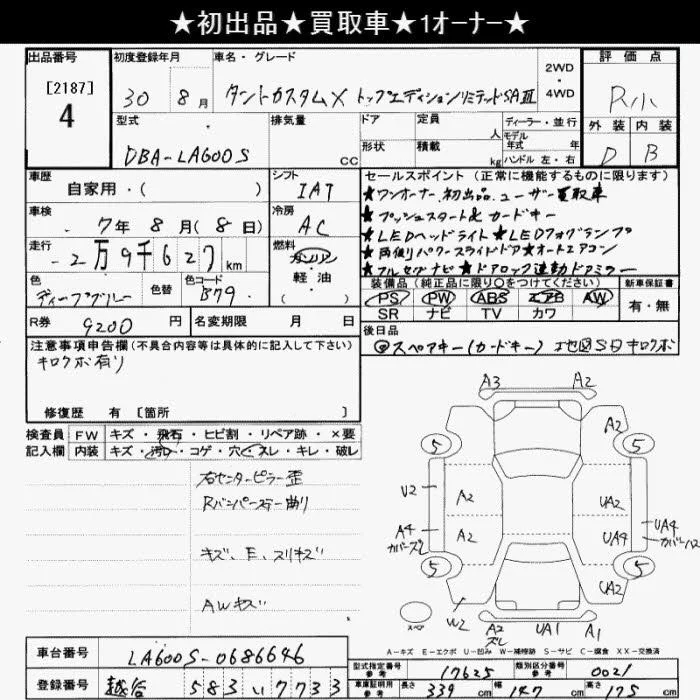 ★初出品★買取車★1オーナー★
出品番号 初度登録年月 車名・グレード 2WD・4WD 評価点
[2187]
4
30 8月 タントカスタムX トップエディションリミテッドSAⅢ R小
型式 排気量 ドア 定員 人 ディーラー・並行 外装 内装
DBA-LA600S cc 形状 積載 kg モデル年式 年 ハンドル 左・右 D B
車歴 シフト セールスポイント(正常に機能するものに限ります)
自家用・( ) IAT ★ワンオーナー、初出品、ユーザー買取車
車検 冷房 ★プッシュスタート& カードキー
7年 8月(8日) AC ★LEDヘッドライト★LEDフォグランプ
走行 燃料 ★両側パワースライドドア★オートエアコン
2万9千627km ガソリン 軽油 ( ) ★フルセグナビ★ドアロック連動ドアミラー
色 色替 色コード 装備品(純正品に限り○をつけてください) 新車保証書
ディープブルー B79 PS PW ABS エアB AW 有・無
SR ナビ TV カワ
R券 9200円 名変期限 月 日 後日品
注意事項申告欄(不具合内容等は具体的に記入して下さい)
キロクボ有り
修復歴 有 [箇所 ]
検査員 FW キズ・飛石・ヒビ割・リペア跡・×要
記入欄 内装 キズ・汚れ・コゲ・穴・スレ・キレ・破レ
右センターピラー歪
Rバンパーステー曲り
キズ、E、スリキズ
AWキズ
A3 A2
5 A2 5
V2 A2 UA2
A4 A2 UA4 UA4
5 UA2 5
スペア W2 A2 スレ UA1 A1
A-キズ E-エクボ U-凹み W-補修跡 S-サビ C-腐食 XX-交換済
車台番号 LA600S-0686646
型式指定番号 参考 17625 類別区分番号 参考 0021
登録番号 越谷 583 い 7733
車庫証明用 参考 長さ 339cm 幅 147cm 高さ 175cm